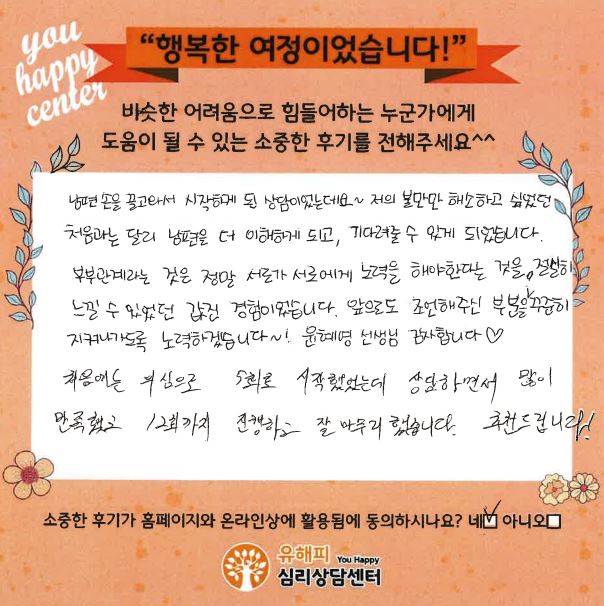 you
happy
center
“행복한 여정이었습니다!”
비슷한 어려움으로 힘들어하는 누군가에게
도움이 될 수 있는 소중한 후기를 전해주세요^^
남편 손을 끌고와서 시작하게 된 상담이었는데요~ 저의 불만만 해소하고 싶었던
처음과는 달리 남편을 더 이해하게 되고, 기다려줄 수 있게 되었습니다.
부부관계라는 것은 정말 서로가 서로에게 노력을 해야한다는 것을 절실히
느낄 수 있었던 값진 경험이었습니다. 앞으로도 조언해주신 부분을 꾸준히
지켜나가도록 노력하겠습니다~! 윤혜영 선생님 감사합니다♡
처음에는 의심으로 5회로 시작했었는데 상담하면서 많이
만족했고 12회까지 진행하고 잘 마무리 했습니다. 추천드립니다!
소중한 후기가 홈페이지와 온라인상에 활용됨에 동의하시나요? 네☑ 아니오□
유해피 You Happy
심리상담센터